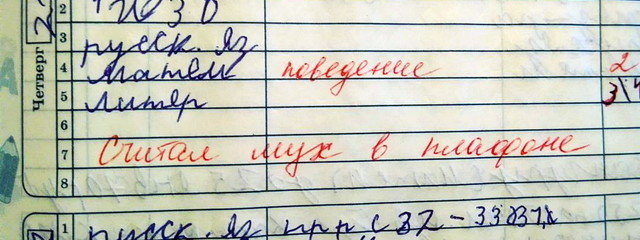 2
ИЗО
3 русск. яз
Четверг
4 матем поведение 2
5 литер 3\4
6
7 Считал мух в плафоне
8
1 русск. яз упр с 32-33